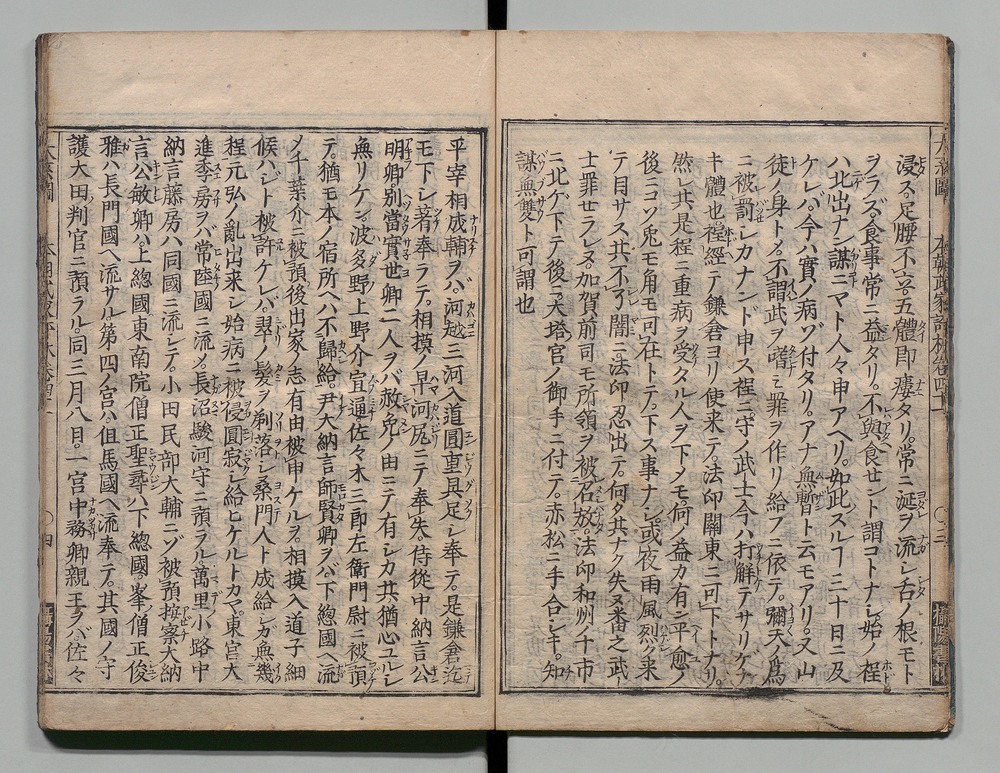 浸ス足腰不立五體即痿タリ常ニ涎ヲ流シ舌ノ根モト
ヲラズ食事常ニ益タリ不與食せント謂コトナシ始ノ程
ハ北出ナン謀ニマト人々申アヘリ如此スルヿ三十日ニ及
ケレバ今ハ實ノ病ゾ付タリアナ無暫ト云モアリ又山
徒ノ身トメ不謂武ヲ嗜ミ罪ヲ作リ給フニ依テ彌天ノ爲
ニ被罰シカナンド申ス程ニ守ノ武士今ハ打解テサリケナ
キ體也程經テ鎌倉ヨリ使来テ法印關東ニ可下トナリ
然レ共是程ニ重病ヲ受タル人ヲ下メモ何ノ益カ有ン平愈ノ
後ニコソ兎モ角モ可在トテ下ス事ナシ或夜雨風烈ク来
テ目サス共不了闇ニ法印忍出テ何タ共ナク失ヌ番之武
士罪せラレヌ加賀前司モ所領ヲ被召放法印和州ノ千市
ニ北ケ下テ後ニ大塔宮ノ御手ニ付テ赤松ニ手合シキ知
謀無雙ト可謂也
平宰相成輔ヲバ河越三河入道圓重具足シ奉テ是鎌倉迄
モ下シ著奉ラテ相摸ノ早河尻ニテ奉失侍從中納言公
明卿別當實世卿二人ヲバ赦免ノ由ニテ有シカ共猶心ユルシ
無リケン波多野上野介宣通佐々木三郎左衛門尉ニ被預
テ猶モ本ノ宿所ヘハ不歸給尹大納言師賢卿ヲバ下總國ヘ流
メ千葉介ニ被預後出家ノ志有由被申ケルヲ相摸入道子細
候ハジト被許ケレバ翠ノ髪ヲ剃落シ桑門人ト成給シカ無幾
程元弘ノ亂出来シ始病ニ被侵圓寂シ給ヒケルトカマ東宮大
進季房ヲバ常陸國ニ流メ長沼駿河守ニ預ラル萬里小路中
納言藤房ハ同國ニ流レテ小田民部大輔ニゾ被預按察大納
言公敏卿ハ上總國東南院僧正聖尋ハ下總國峯ノ僧正俊
雅ハ長門國ヘ流サル第四ノ宮ハ但馬國ヘ流奉テ其國ノ守
護大田判官ニ預ラル同三月八日一宮中務卿親王ヲバ佐々